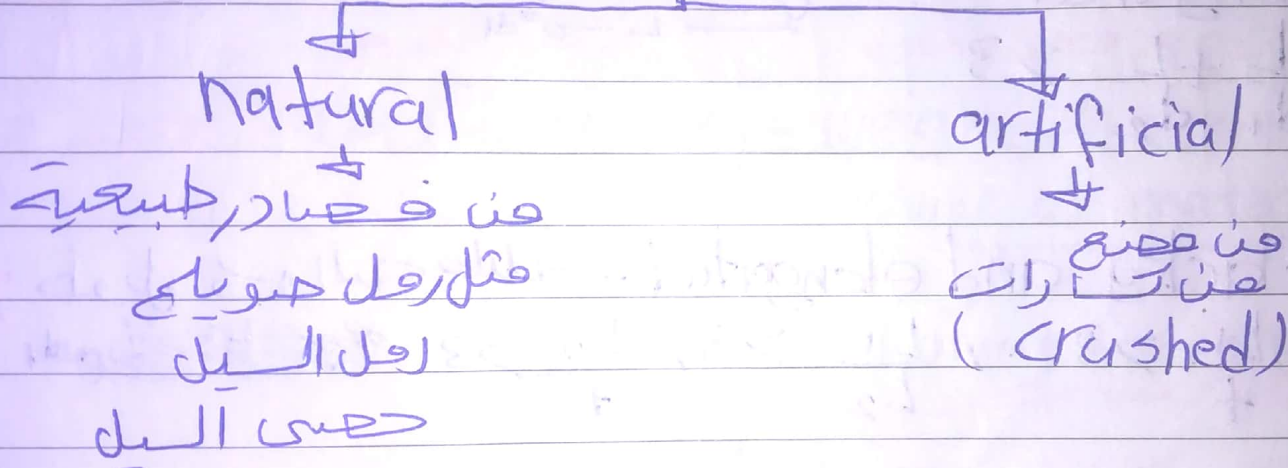 natural
من مصادر طبيعية
مثل رمل صويلح
رمل السيل
حصى السيل
artificial
من مصنع
من كسارات
(crushed)